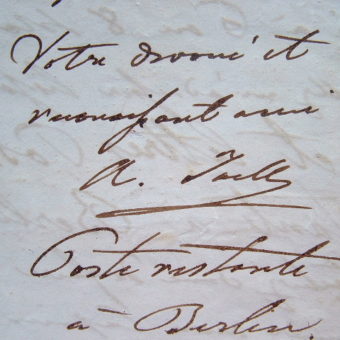 Votre dévoué et
reconnaissant ami
A. Jaell
Poste restante
à Berlin.